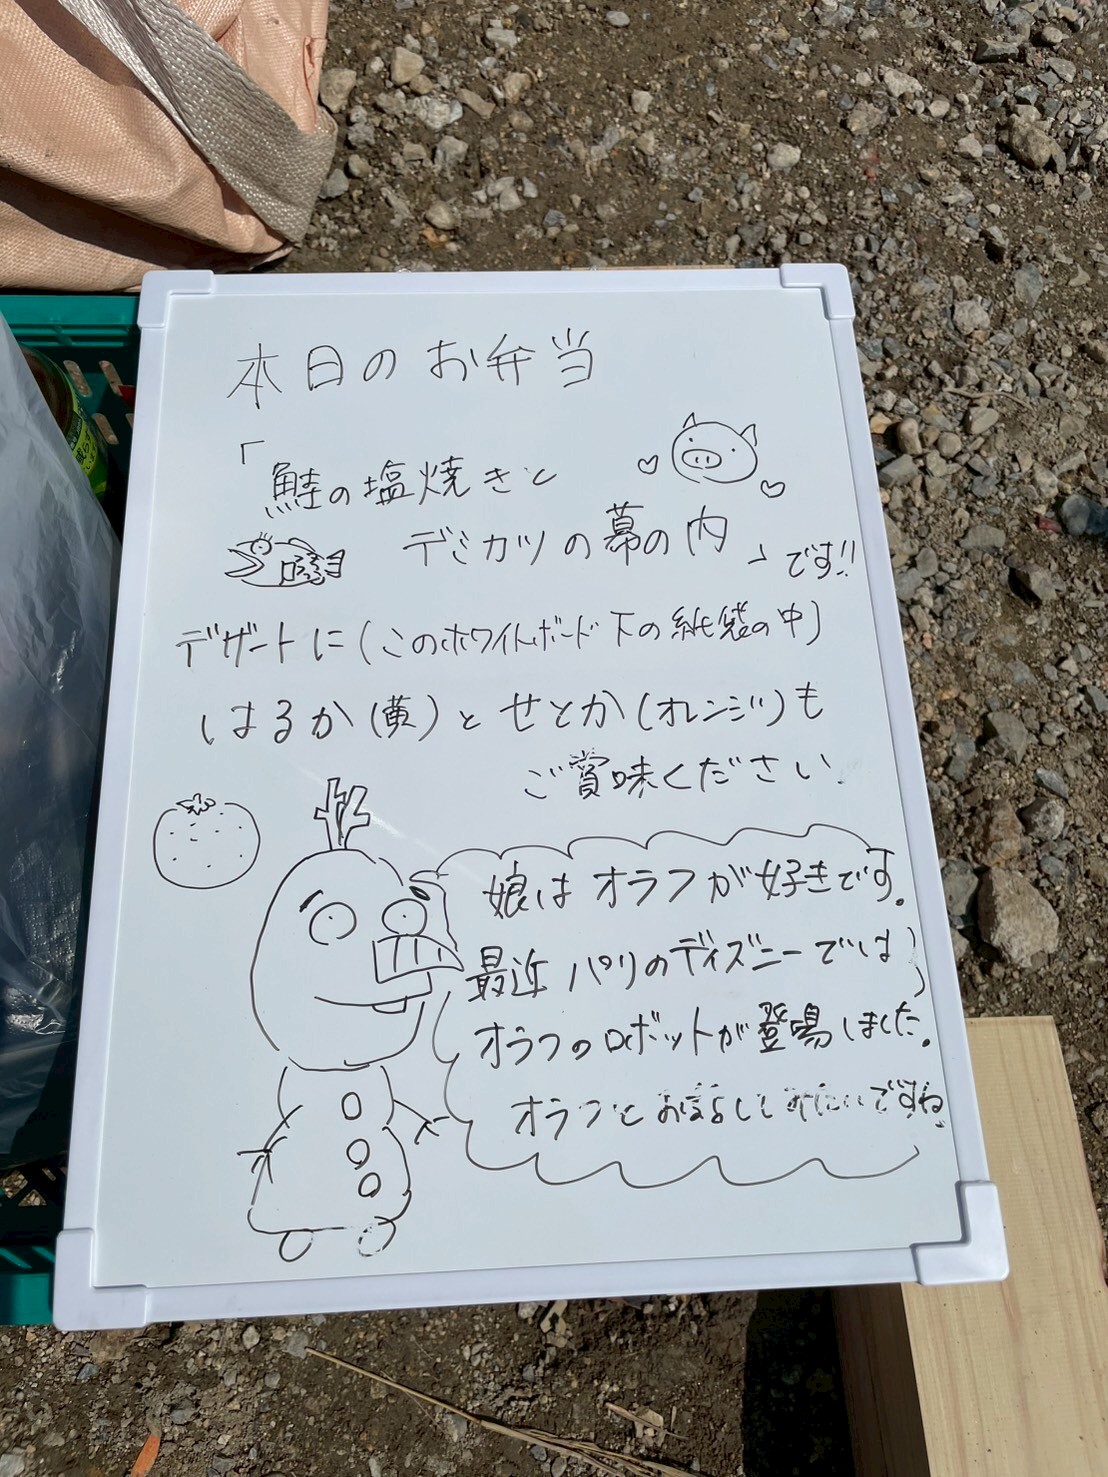 本日のお弁当
「鮭の塩焼きと
デミカツの幕の内」です!!
デザートに(このホワイトボード下の紙袋の中)
はるか(黄)とせとか(オレンジ)も
ご賞味ください。
娘はオラフが好きです。
最近パリのディズニーでは、
オラフのロボットが登場しました。
オラフとお話ししてみたいですね。